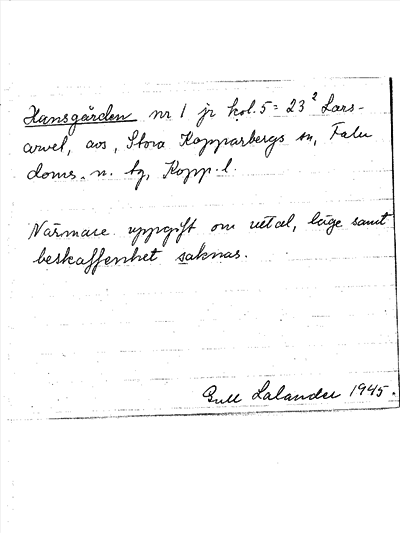 Hansgården nr 1 jr kol. 5 = 23² Lars-
arvel, avs, Stora Kopparbergs sn, Falu
doms. n. tg, Kopp. l.
Närmare uppgift om uttal, läge samt
beskaffenhet saknas.
Gull Lalander 1945.